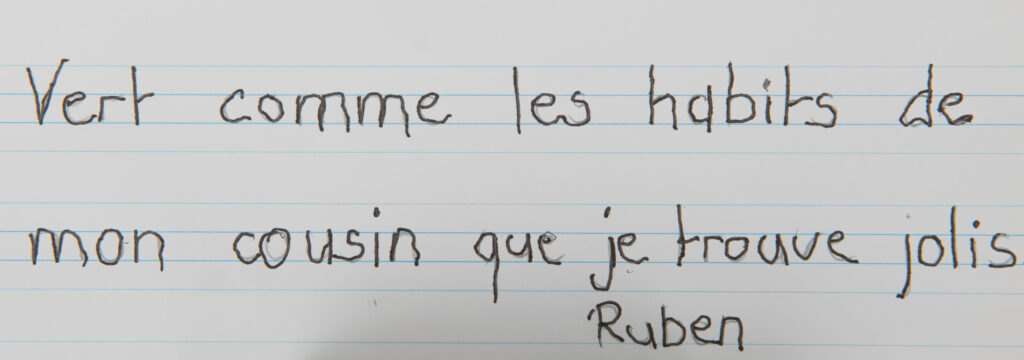 Vert comme les habits de
mon cousin que je trouve jolis
Ruben